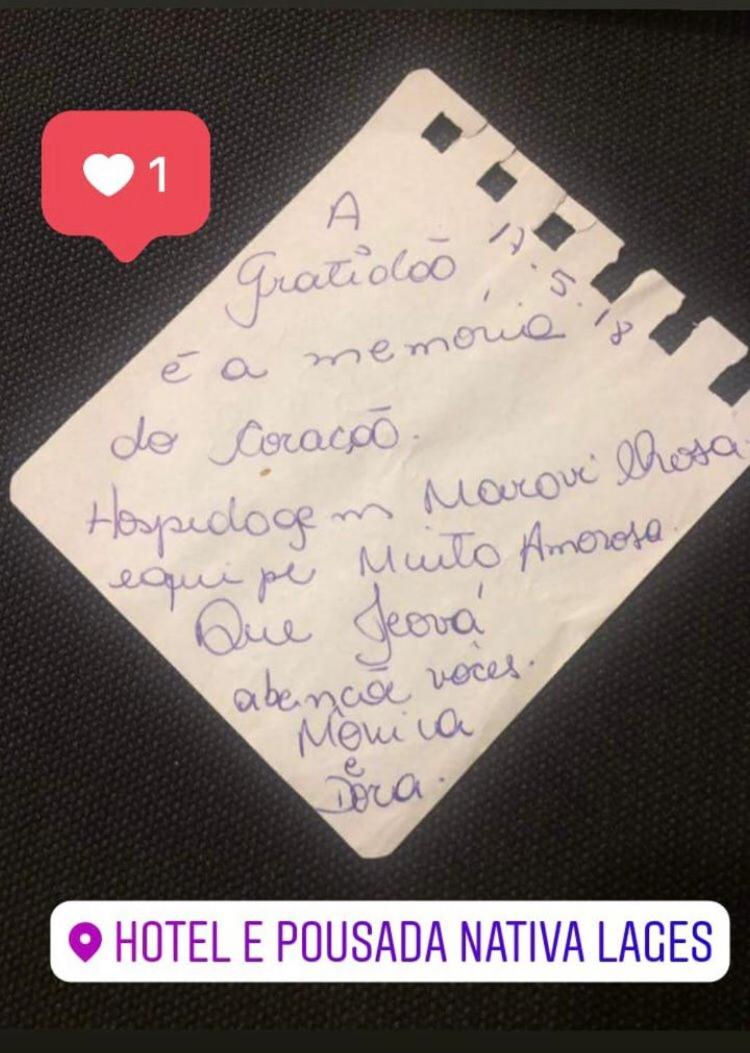 1
A
Gratidão
17.5.18
é a memória
do coração.
Hospedagem Maravilhosa
equipe Muito Amorosa.
Que Jeová
abençõe vocês.
Mônica
e
Dora.
HOTEL E POUSADA NATIVA LAGES